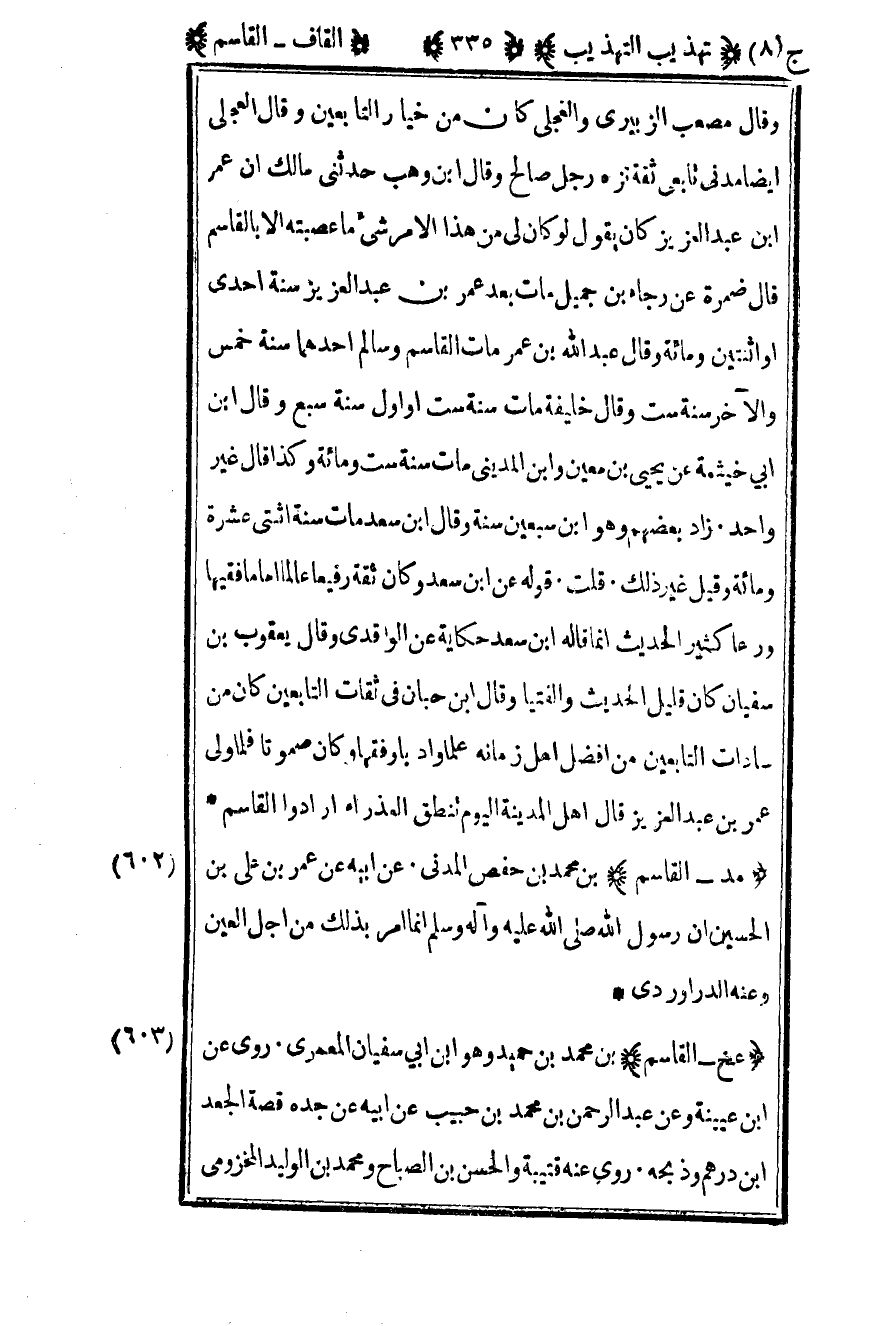 ج (٨) ﴿ تهذيب التهذيب ﴾ ﴿ ٣٣٥ ﴾ ﴿ القاف - القاسم ﴾
وقال مصعب الزبيرى والعجلى كان من خيار التابعين وقال العجلى
ايضا مدنى تابعى ثقة نزه رجل صالح وقال ابن وهب حدثنى مالك ان عمر
ابن عبد العزيز كان يقول لو كان لى من هذا الامر شىء ما عصبته الا بالقاسم
قال ضمرة عن رجاء بن جميل مات بعد عمر بن عبد العزيز سنة احدى
او اثنتين ومائة وقال عبد الله بن عمر مات القاسم وسالم احدهما سنة خمس
والآخر سنة ست وقال خليفة مات سنة ست او اول سنة سبع وقال ابن
ابي خيثمة عن يحيى بن معين وابن المدينى مات سنة ست ومائة وكذا قال غير
واحد · زاد بعضهم وهو ابن سبعين سنة وقال ابن سعد مات سنة اثنتى عشرة
ومائة وقيل غير ذلك · قلت · قوله عن ابن سعد وكان ثقة رفيعا عالما اماما فقيها
ورعا كثير الحديث انما قاله ابن سعد حكاية عن الواقدى وقال يعقوب بن
سفيان كان قليل الحديث والفتيا وقال ابن حبان فى ثقات التابعين كان من
سادات التابعين من افضل اهل زمانه علما وادبا وفقها وكان صموتا فلما ولى
عمر بن عبد العزيز قال اهل المدينة اليوم تنطق العذراء ارادوا القاسم *
(٦٠٢) ﴿ مد - القاسم ﴾ بن محمد بن حفص المدنى · عن ابيه عن عمر بن على بن
الحسين ان رسول الله صلى الله عليه وآله وسلم انما امر بذلك من اجل العين
وعنه الدراوردى *
(٦٠٣) ﴿ عخ - القاسم ﴾ بن محمد بن حميد وهو ابن ابي سفيان المعمرى · روى عن
ابن عيينة وعن عبد الرحمن بن محمد بن حبيب عن ابيه عن جده قصة الجعد
ابن درهم وذبحه · روى عنه قتيبة والحسن بن الصباح ومحمد بن الوليد المخزومى